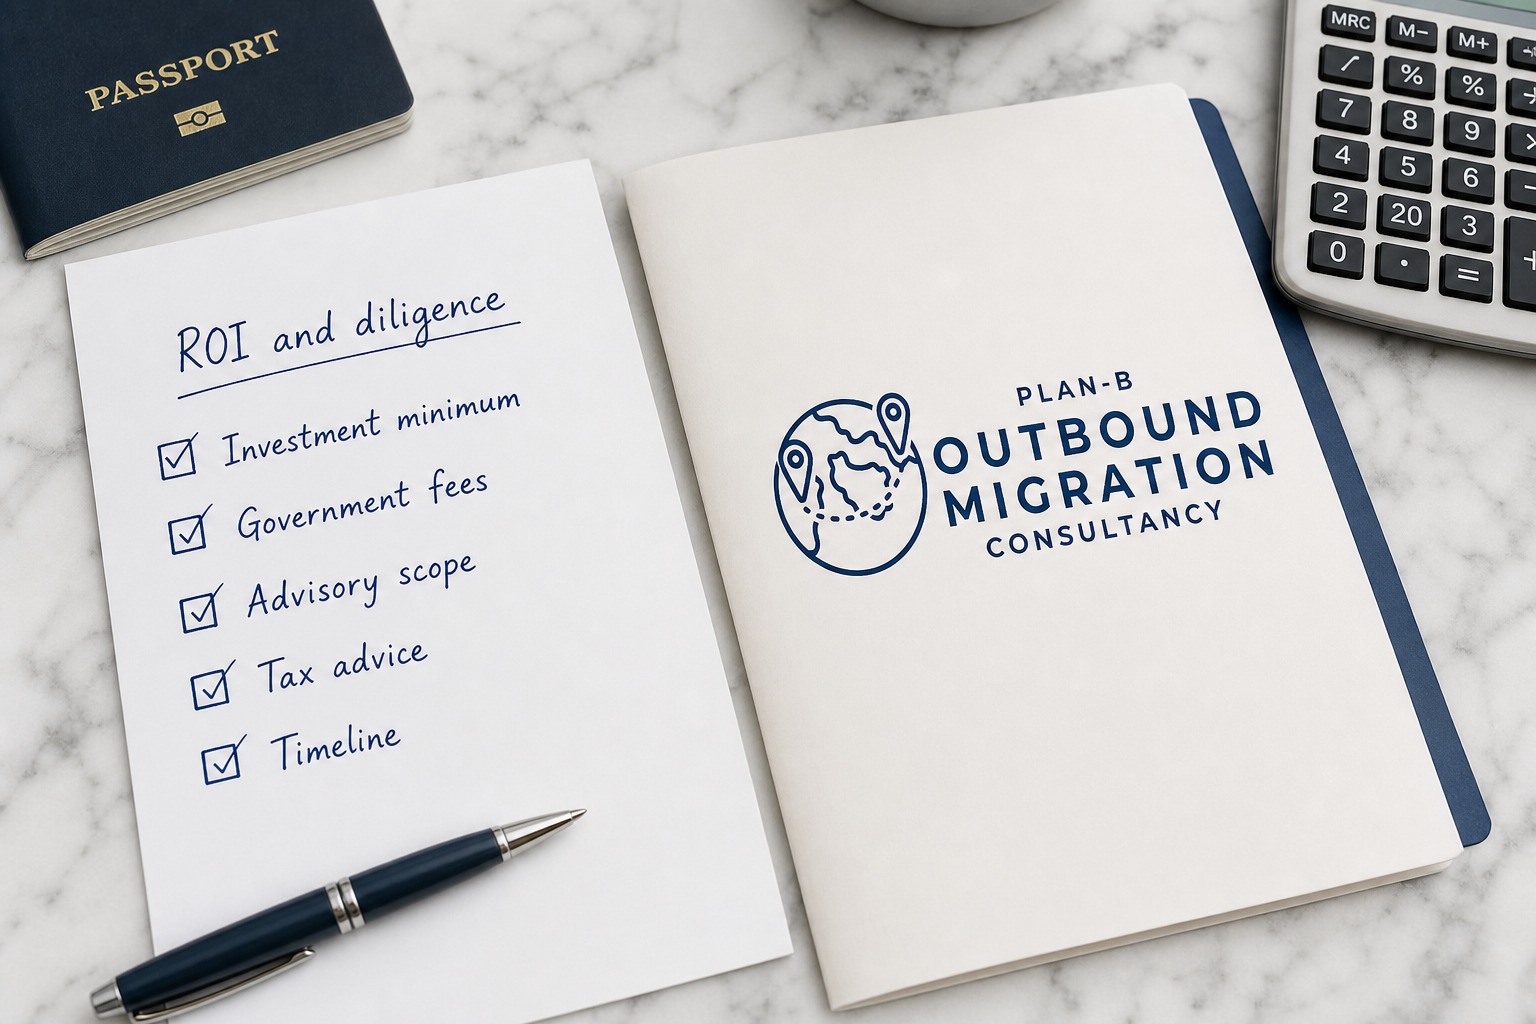 PASSPORT
ROI and diligence
Investment minimum
Government fees
Advisory scope
Tax advice
Timeline
PLAN-B
OUTBOUND
MIGRATION
CONSULTANCY
MRC M− M+
% %
7 8 9
4 5 6
2 20 3 +
0 . =